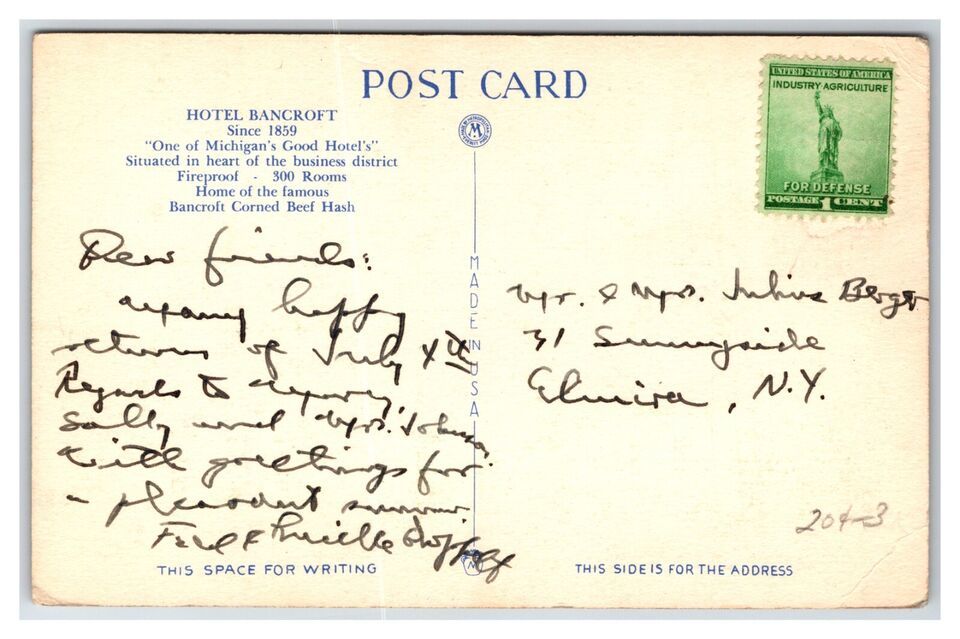 POST CARD
HOTEL BANCROFT
Since 1859
"One of Michigan's Good Hotel's"
Situated in heart of the business district
Fireproof - 300 Rooms
Home of the famous
Bancroft Corned Beef Hash
UNITED STATES OF AMERICA
INDUSTRY AGRICULTURE
FOR DEFENSE
POSTAGE 1 CENT
MADE IN USA
Dear friends:
Many happy
returns of July
Regards to
Sally and Mrs. Johnson
with greetings for
a pleasant summer
Fred & Lucille
Mr. & Mrs. Julius Berger
31 Sunnyside
Elmira, N.Y.
204-3
THIS SPACE FOR WRITING
THIS SIDE IS FOR THE ADDRESS